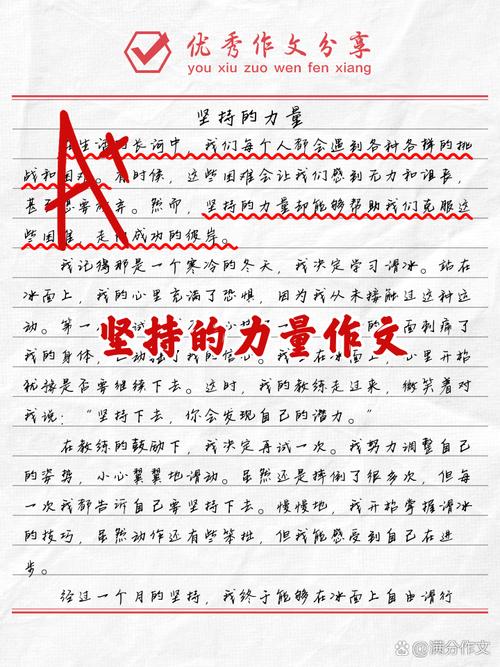 优秀作文分享
you xiu zuo wen fen xiang
坚持的力量
A+
生活的长河中，我们每个人都会遇到各种各样的挑
战和困难。有时候，这些困难会让我们感到无力和沮丧，
甚至想要放弃。然而，坚持的力量却能够帮助我们克服这
些困难，走向成功的彼岸。
我记得那是一个寒冷的冬天，我决定学习滑冰。站在
冰面上，我的心里充满了恐惧，因为我从未接触过这种运
动。第一 面刺痛了
坚持的力量作文
我的身体， 我 在冰面上，心里开始
犹豫是否要继续下去。这时，我的教练走过来，微笑着对
我说：“坚持下去，你会发现自己的潜力。”
在教练的鼓励下，我决定再试一次。我努力调整自己
的姿势，小心翼翼地滑动。虽然还是摔倒了很多次，但每
一次我都告诉自己要坚持下去。慢慢地，我开始掌握滑冰
的技巧，虽然动作还有些笨拙，但我能感受到自己在进
步。
经过一个月的坚持，我终于能够在冰面上自由滑行
@满分作文